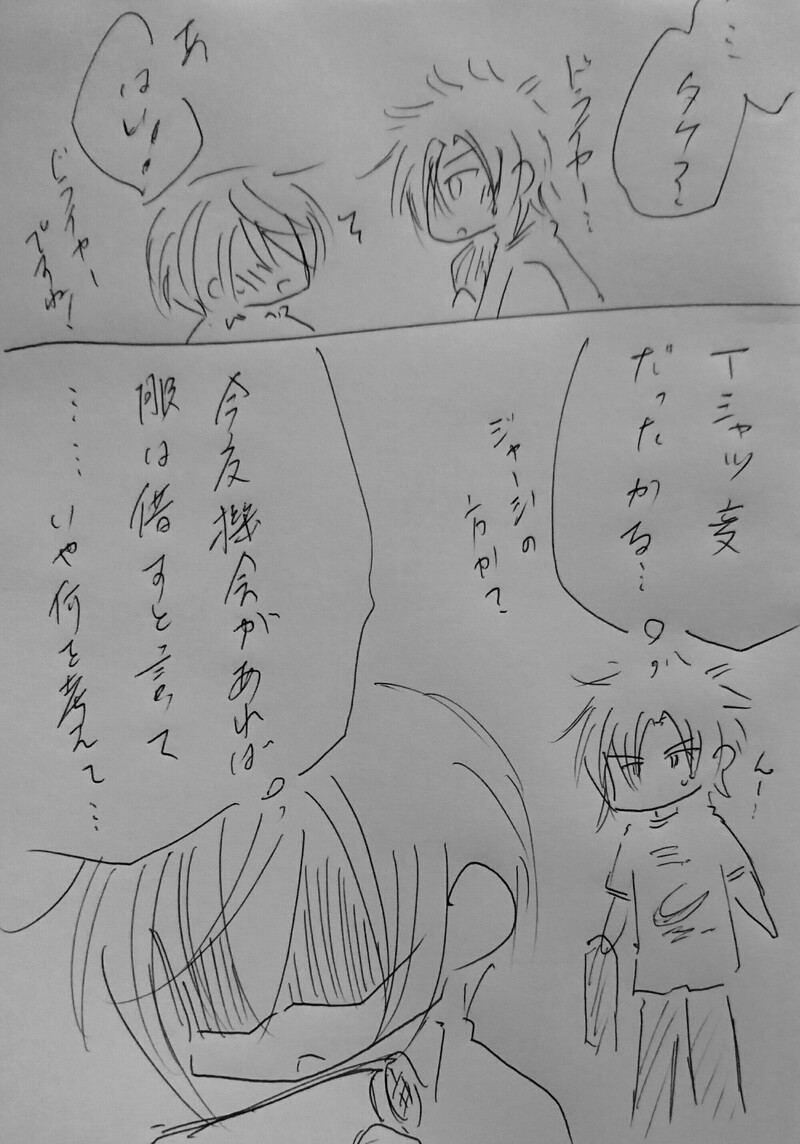 …タケマ
ドライヤー…
そ
あ
はい!
ドライヤー
ですね!
Tシャツ変
だったかな…
ジャージの
方がて
んー…
今度機会があれば
服は借すと言って
……いや何を考えて…